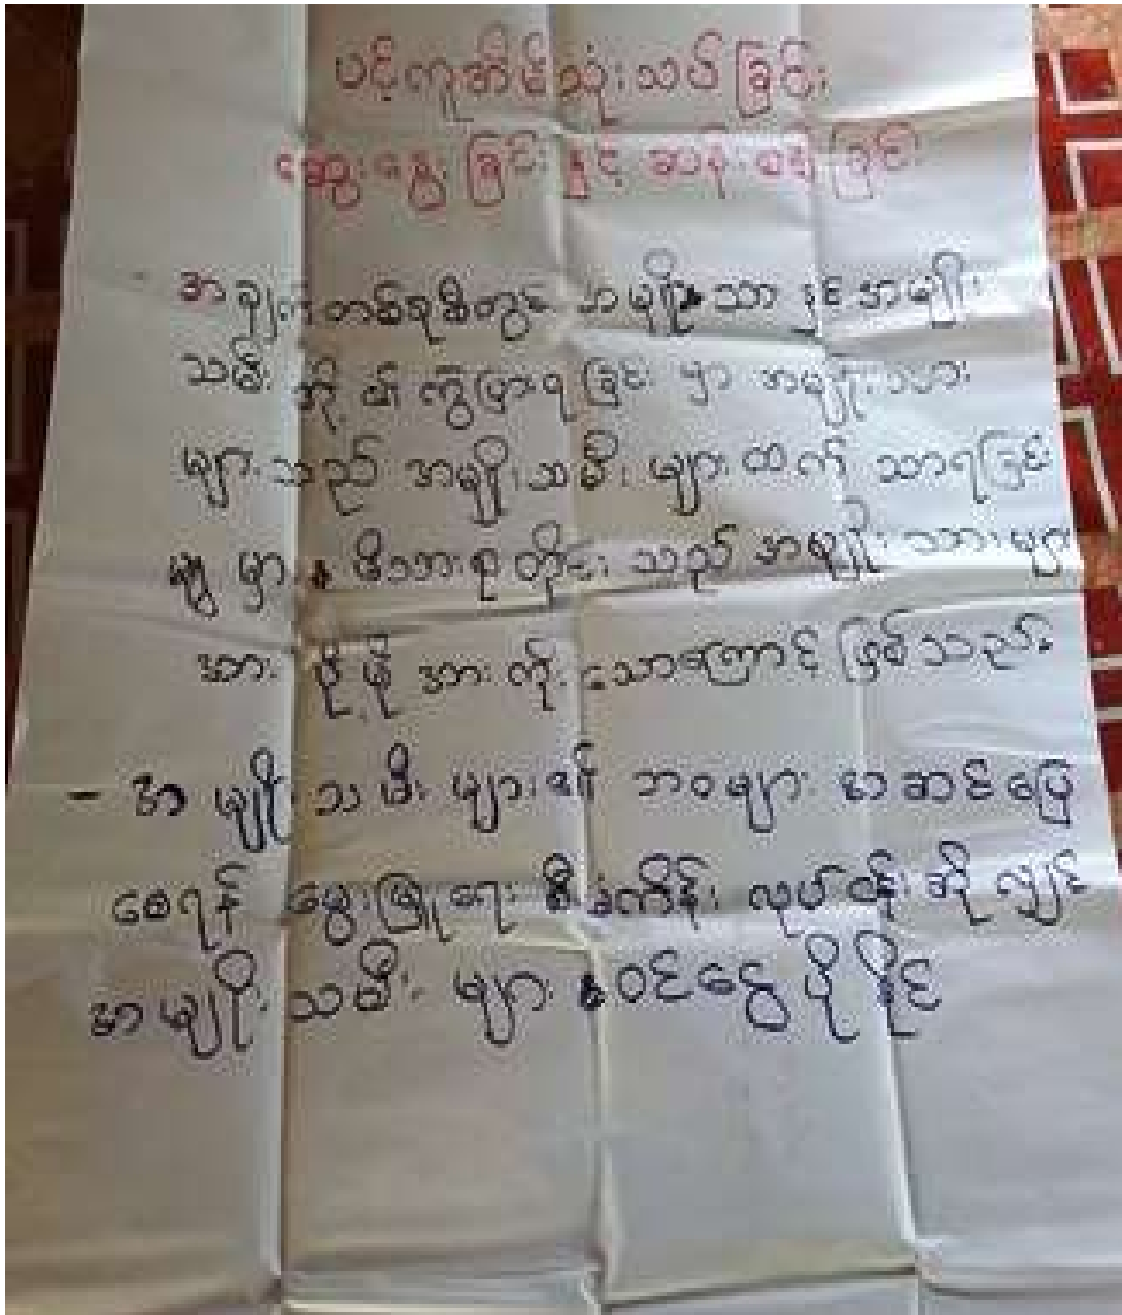 ပင့်ကူအိမ်သုံးသပ်ခြင်း
ဆွေးနွေးခြင်း နှင့် ဆန်းစစ်ခြင်း
အချက်တစ်ခုစီတွင် အမျိုးသား နှင့် အမျိုး
သမီး တို့ ၏ ကွဲပြားရခြင်း မှာ အမျိုးသား
များသည် အမျိုးသမီး များထက် သာရခြင်း
မျှ မှာ မိသားစုတိုင်း သည် အမျိုးသားများ
အား ပိုမို အားကိုးသောကြောင့် ဖြစ်သည်။
- အမျိုးသမီးများ၏ ဘဝများ အဆင်ပြေ
စေရန် မွေးမြူရေး စီမံကိန်း လုပ်ငန်းဆိုလျှင်
အမျိုးသမီး များ ဝင်ငွေပိုနိုင်